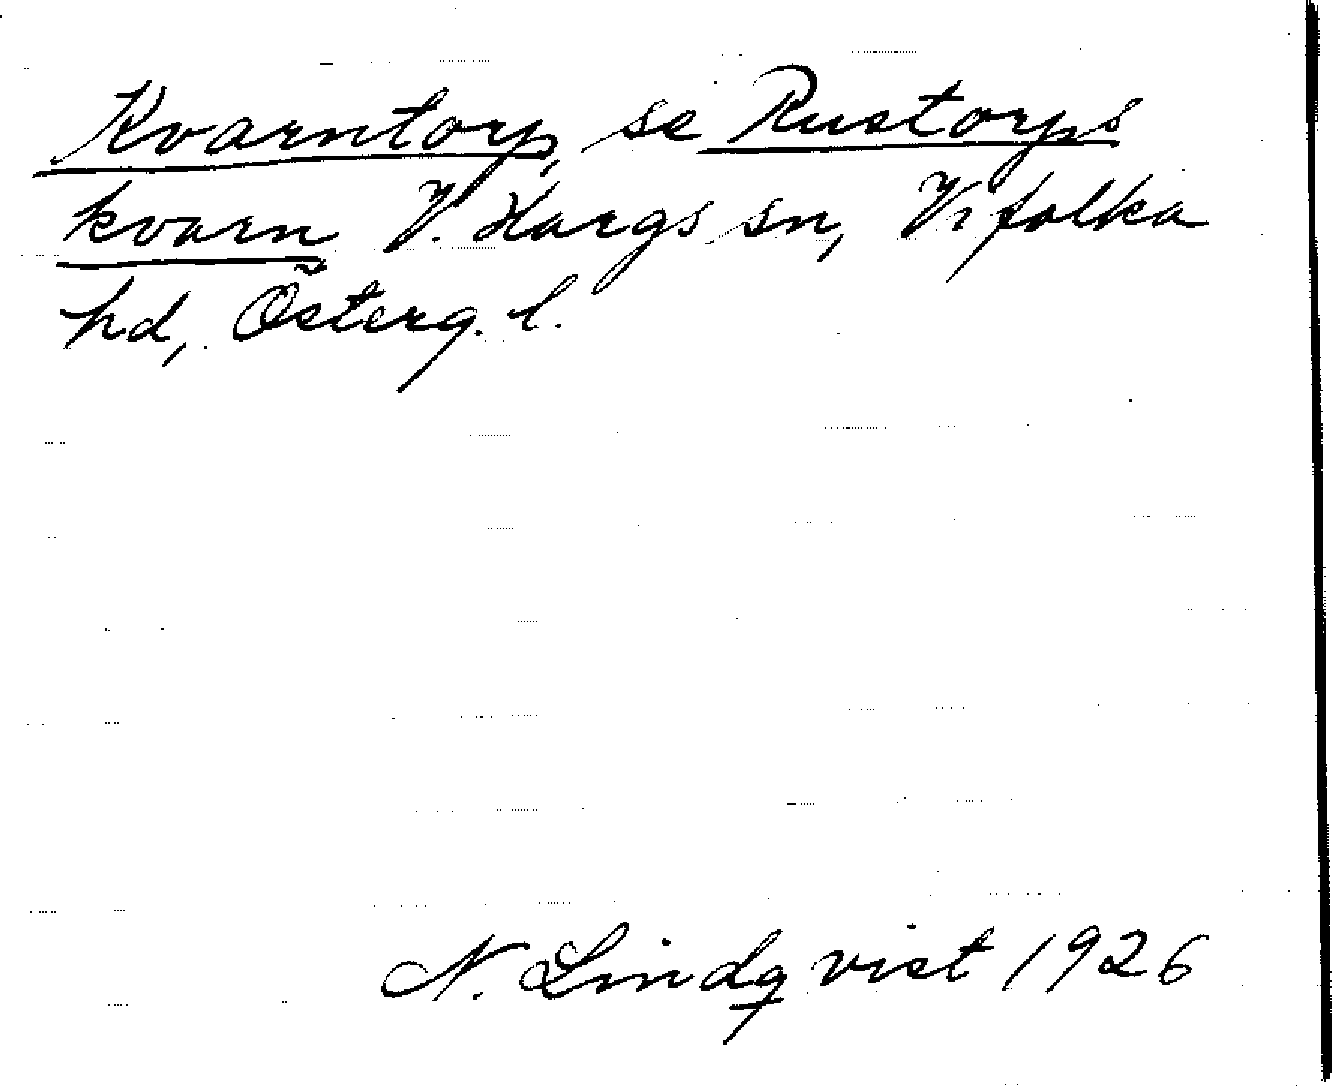 Kvarntorp, se Rustorps
kvarn V. Hargs sn, Vifolka
hd, Österg. l.
N. Lindqvist 1926